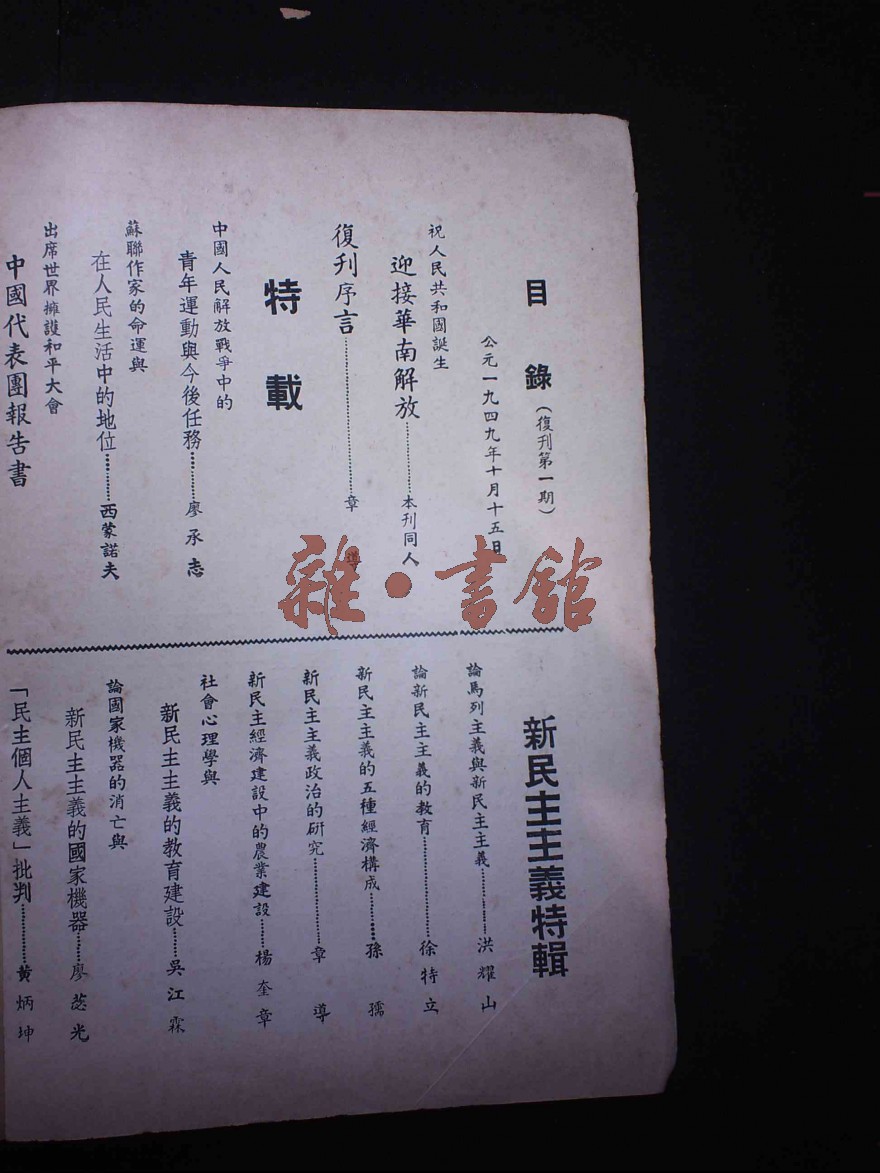 目錄(復刊第一期)
公元一九四九年十月十五日
祝人民共和國誕生
迎接華南解放…………本刊同人
復刊序言…………………章導
特載
中國人民解放戰爭中的
青年運動與今後任務………廖承志
蘇聯作家的命運與
在人民生活中的地位………西蒙諾夫
出席世界擁護和平大會
中國代表團報告書
新民主主義特輯
論馬列主義與新民主主義…………洪耀山
論新民主主義的教育…………………徐特立
新民主主義的五種經濟構成………孫孺
新民主主義政治的研究……………章導
新民主經濟建設中的農業建設……楊奎章
社會心理學與
新民主主義的教育建設……吳江霖
論國家機器的消亡與
新民主主義的國家機器……廖蕊光
「民主個人主義」批判…………黃炳坤
雜·書館